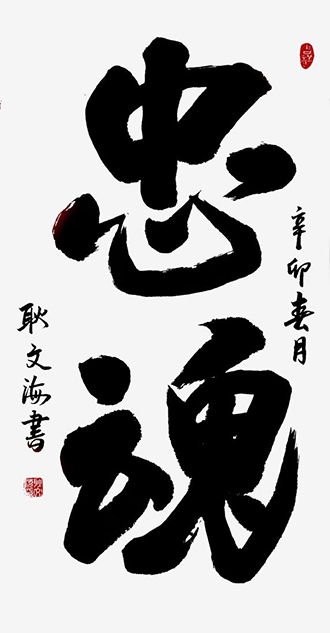 忠魂
辛卯春月
耿文海書